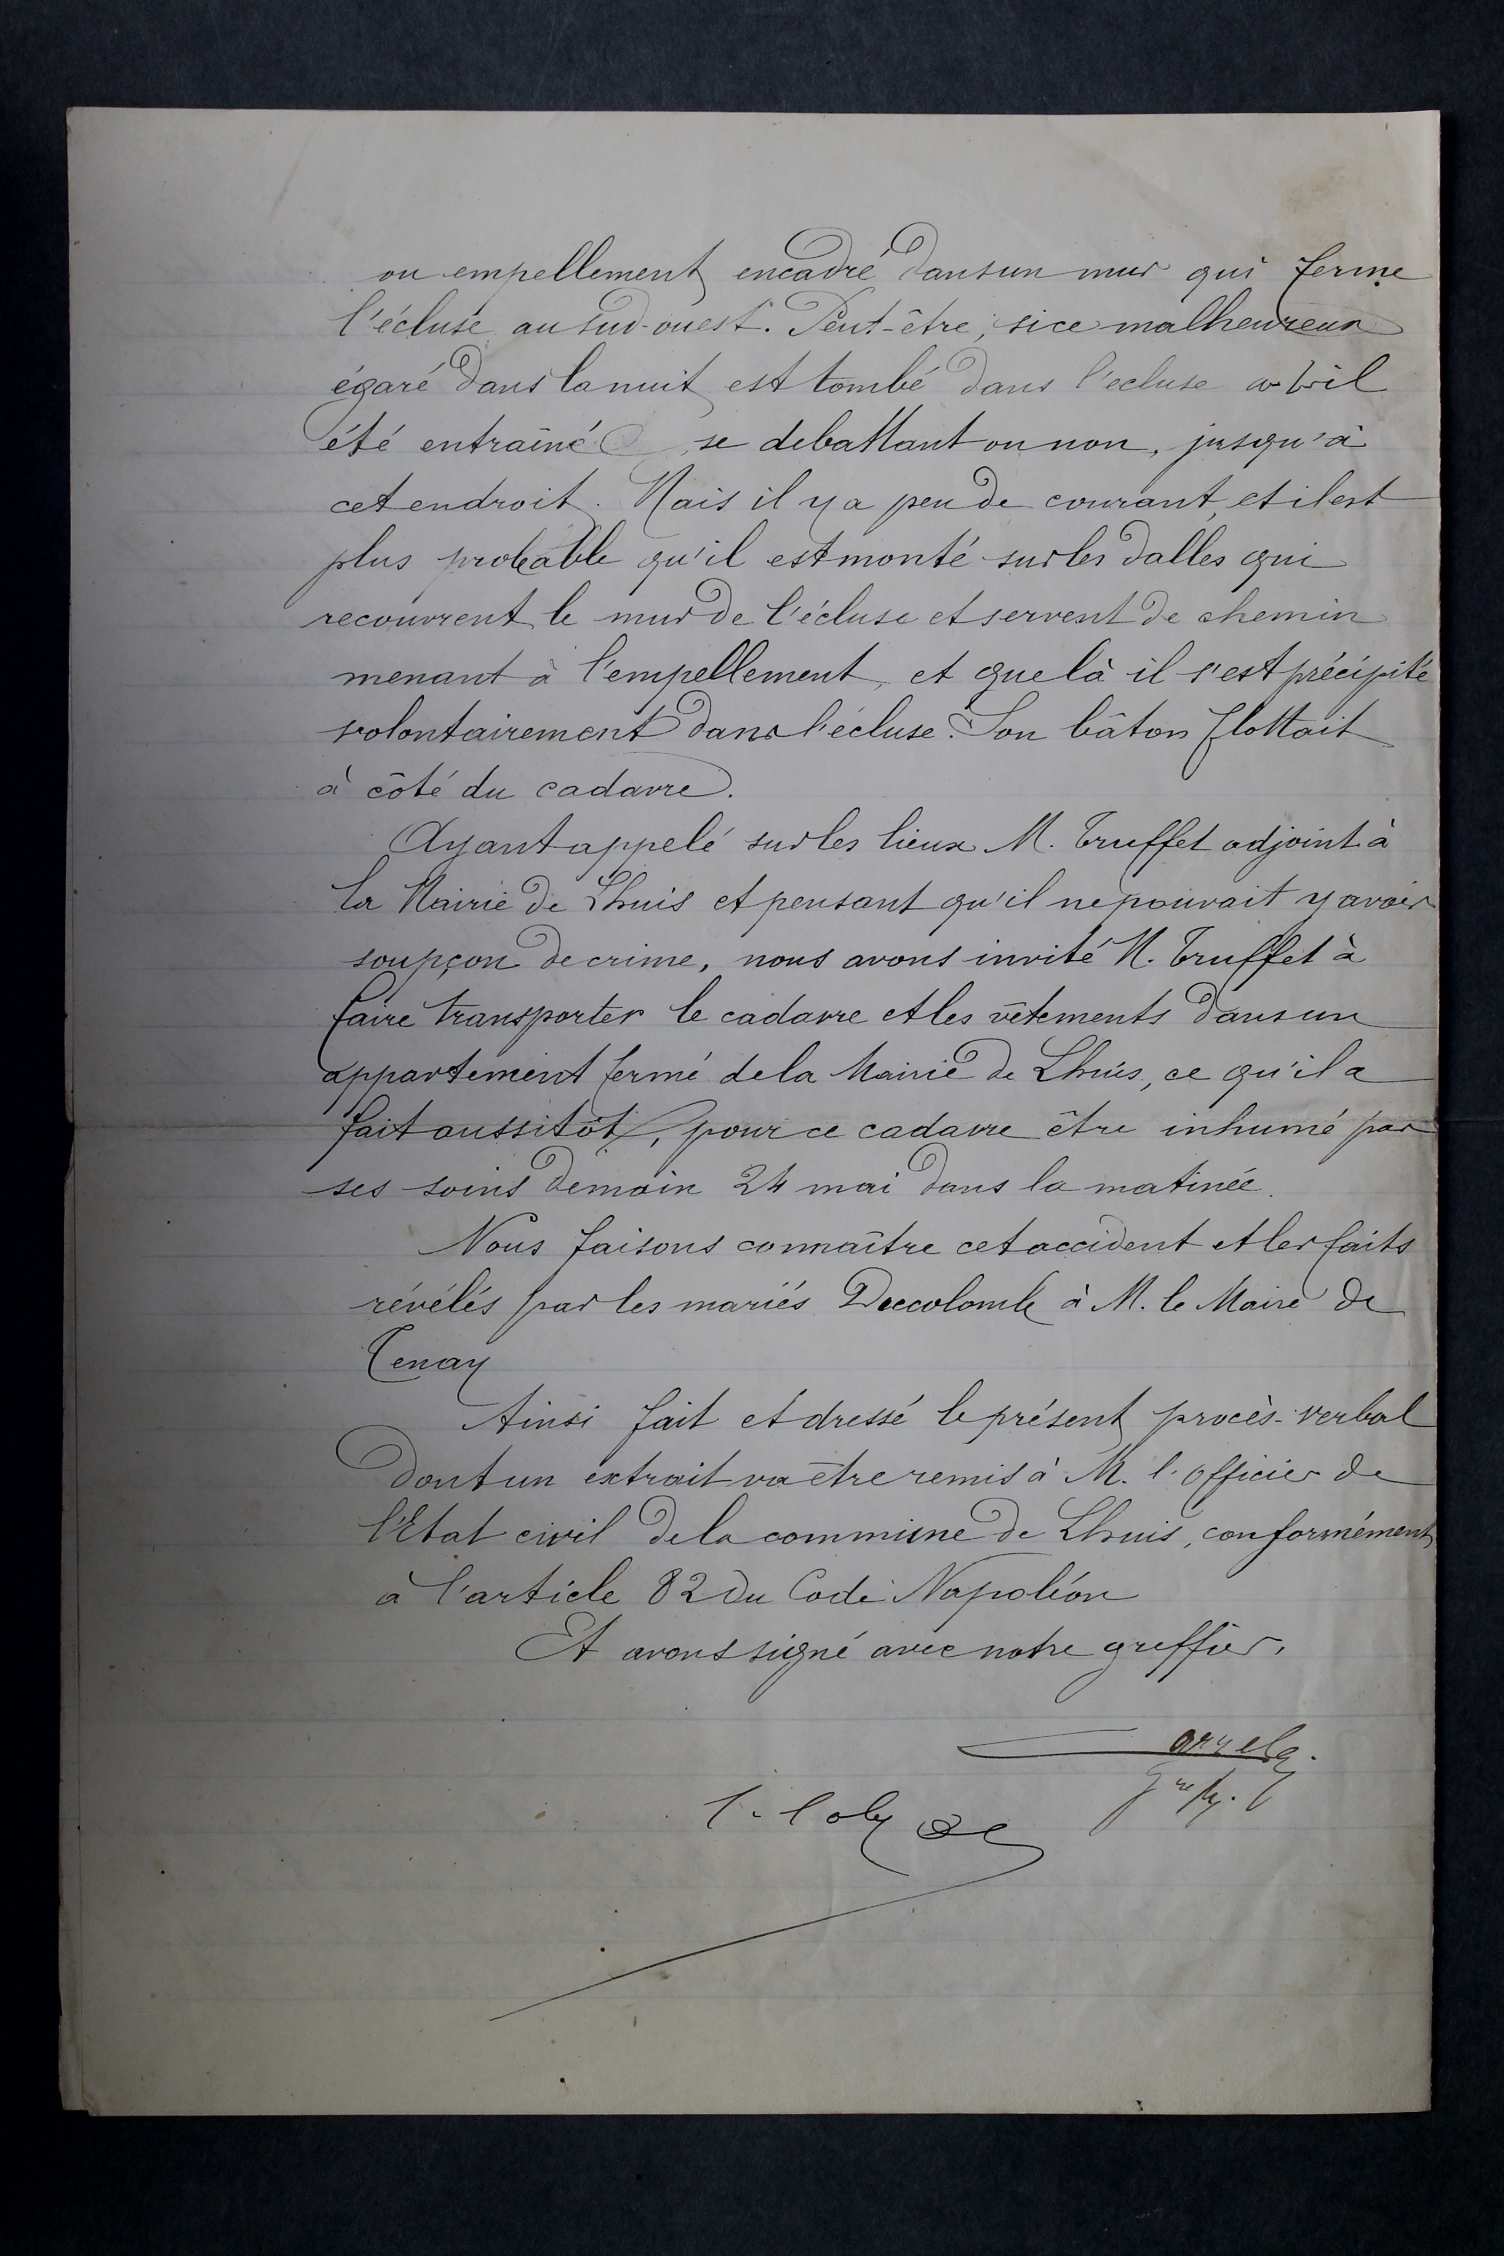 ou empellement encadré dans un mur qui ferme
l'écluse au sud-ouest. Peut-être, si ce malheureux
égaré dans la nuit est tombé dans l'ecluse a-t-il
été entraîné se debattant ou non, jusqu'à
cet endroit. Mais il y a peu de courant, et il est
plus probable qu'il est monté sur les dalles qui
recouvrent le mur de l'écluse et servent de chemin
menant à l'empellement, et que là il s'est précipité
volontairement dans l'écluse. Son bâton flottait
à côté du cadavre.
Ayant appelé sur les lieux M. Truffet adjoint à
la Mairie de Lhuis et pensant qu'il ne pouvait y avoir
soupçon de crime, nous avons invité M. Truffet à
faire transporter le cadavre et les vêtements dans un
appartement fermé de la Mairie de Lhuis, ce qu'il a
fait aussitôt, pour ce cadavre être inhumé par
ses soins demain 24 mai dans la matinée.
Nous faisons connaître cet accident et les faits
révélés par les mariés Deccolomb à M. le Maire de
Tenay
Ainsi fait et dressé le présent procès-verbal
dont un extrait va être remis à M. l'officier de
l'Etat civil de la commune de Lhuis, conformément
à l'article 82 du Code Napoléon
Et avons signé avec notre greffier.